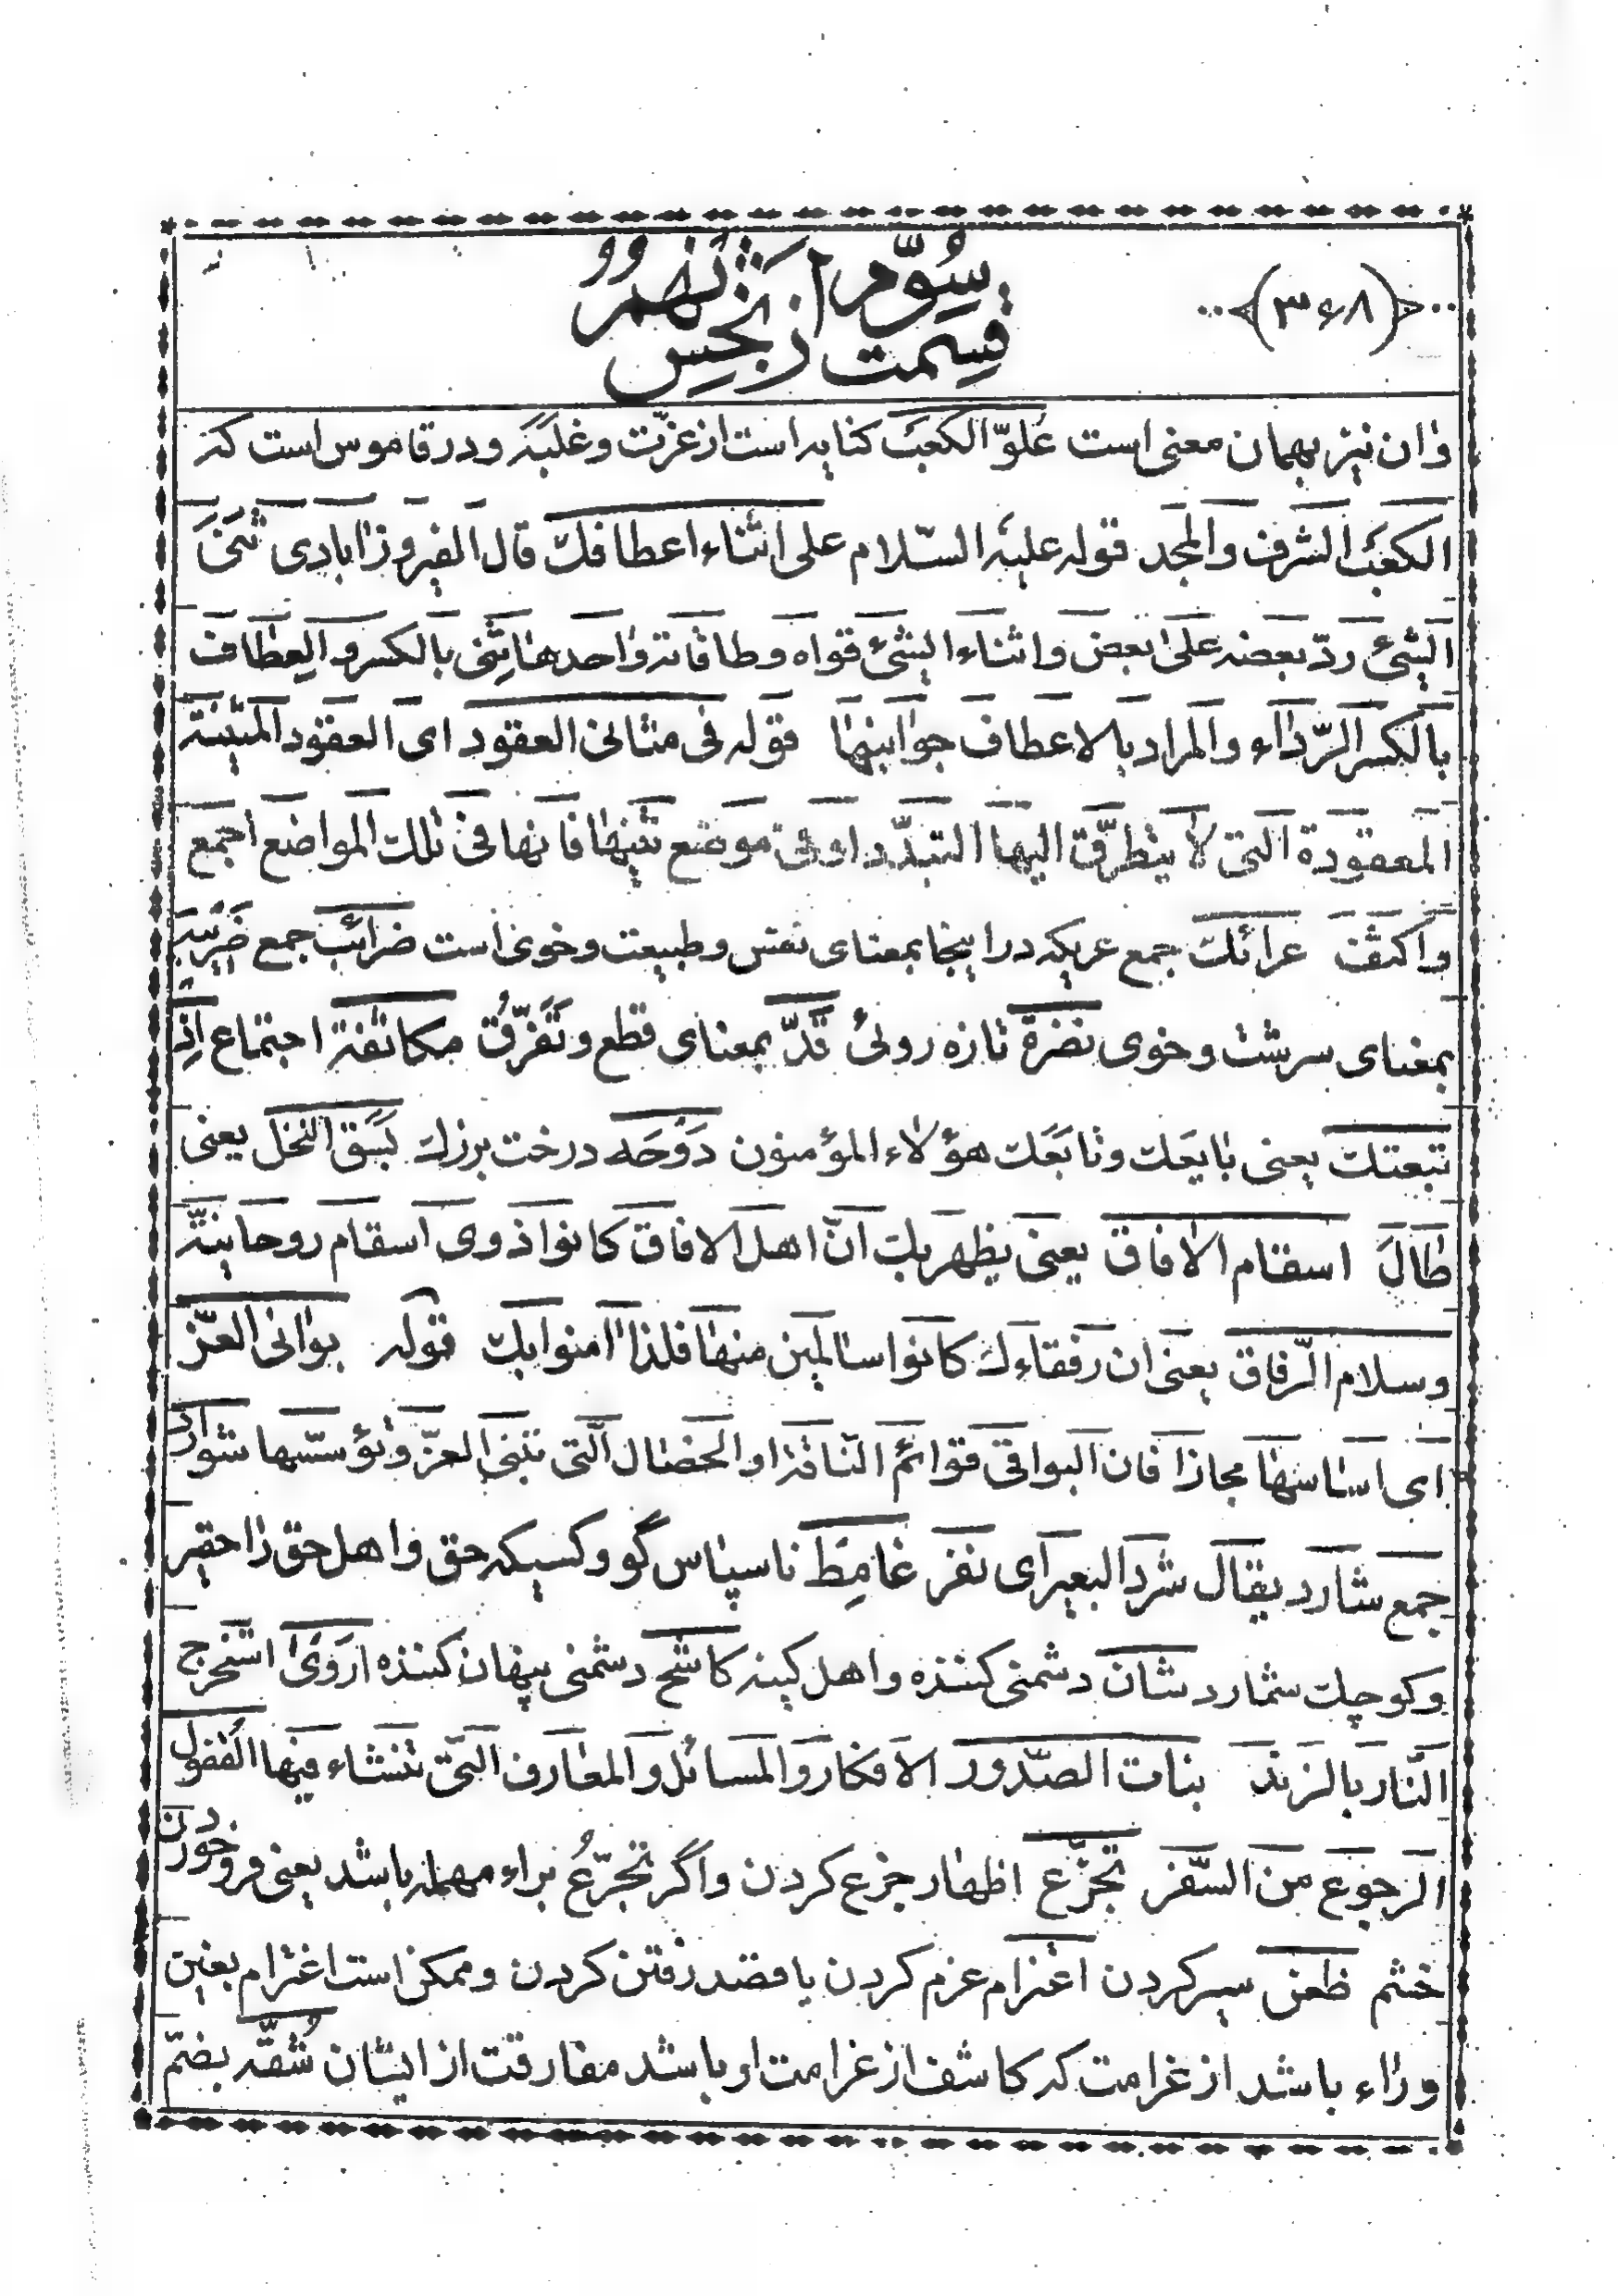 ﴿۳۶۸﴾
قسمت سوّم از بخش نهم
و ان نیز بهمان معنی است علوّ الکعب کنایه است از عزّت و غلبه و در قاموس است که
الکعب الشرف والمجد قوله علیه السّلام علی اثناء اعطافک قال الفیروزابادی ثنی
الشیئ ردّ بعضه علی بعض و اثناء الشیئ قواه و طاقاته واحدها ثنی بالکسر و العطاف
بالکسر الرّداء والمراد بالاعطاف جوانبها قوله فی مثانی العقود ای العقود المثنیة
المعقودة التی لا یتطرّق الیها التبدّد او فی موضع ثنیها فانها فی تلک المواضع اجمع
واکثف عرائک جمع عریکه در اینجا بمعنای نفس و طبیعت و خوی است ضرائب جمع ضریبه
بمعنای سرشت و خوی نضرة تازه روئی قدّ بمعنای قطع و تفرّق مکاثفة اجتماع اذ
تبعتک یعنی بایعک و تابعک هؤلاء المؤمنون دوحه درخت بزرک بسق النخل یعنی
طال اسقام الافاق یعنی یظهر بک انّ اهل الافاق کانوا ذوی اسقام روحانیّة
وسلام الرّفاق یعنی ان رفقاءک کانوا سالمین منها فلذا امنوا بک قوله بوانی العزّ
ای اساسها مجازا فان البواقی قوائم الناقة او الخصال الّتی تبنی العزّ و تؤسّسها شوارد
جمع شارد یقال شرد البعیر ای نفر غامط ناسپاس گو و کسیکه حق و اهل حق را حقیر
و کوچک شمارد شان دشمنی کننده و اهل کینه کاشح دشمنی پنهان کننده اروی استخرج
النّار بالزند بنات الصّدور الافکار والمسائل والمعارف الّتی تنشاء فیها القفول
الرجوع من السّفر تجزّع اظهار جزع کردن و اگر تجرّع براء مهمله باشد یعنی فرو خوردن
خشم ظعن سیر کردن اعتزام عزم کردن یا قصد رفتن کردن و ممکن است اغترام بغین
و راء باشد از غرامت که کاشف از غرامت او باشد مفارقت از ایشان شقّه بضمّ